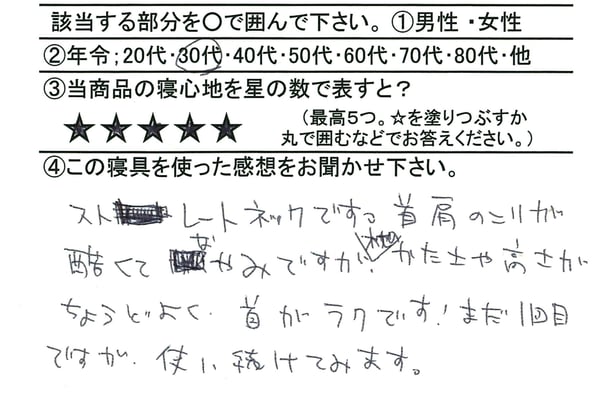 該当する部分を〇で囲んで下さい。①男性・女性
②年令；20代・30代・40代・50代・60代・70代・80代・他
③当商品の寝心地を星の数で表すと？
★★★★★
（最高5つ。☆を塗りつぶすか
丸で囲むなどでお答えください。）
④この寝具を使った感想をお聞かせ下さい。
ストレートネックです。首肩のこりが
酷くてなやみですが、枕のかたさや高さが
ちょうどよく、首がラクです！まだ1回目
ですが、使い続けてみます。